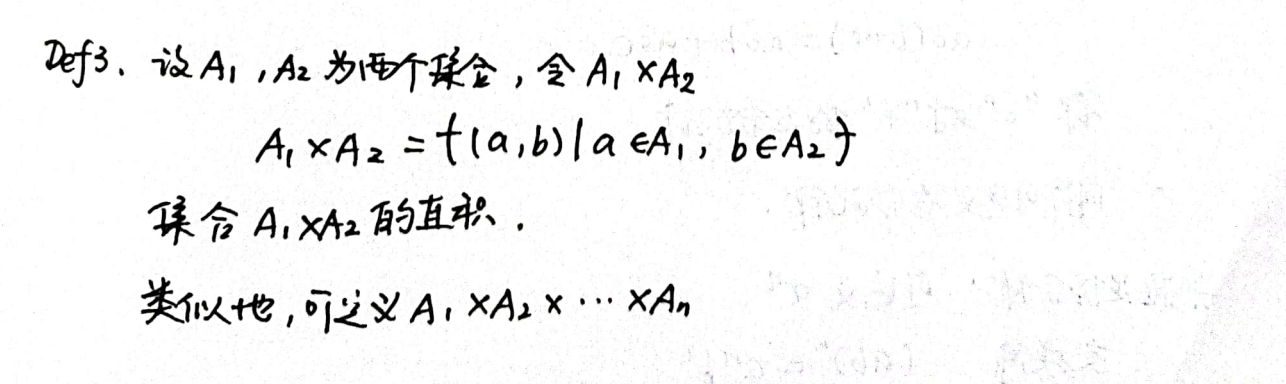 Def3. 设 A₁, A₂ 为两个集合, 令 A₁×A₂
A₁×A₂ = {(a,b)|a∈A₁, b∈A₂}
集合 A₁×A₂ 的直积.
类似地, 可定义 A₁×A₂×⋯×Aₙ